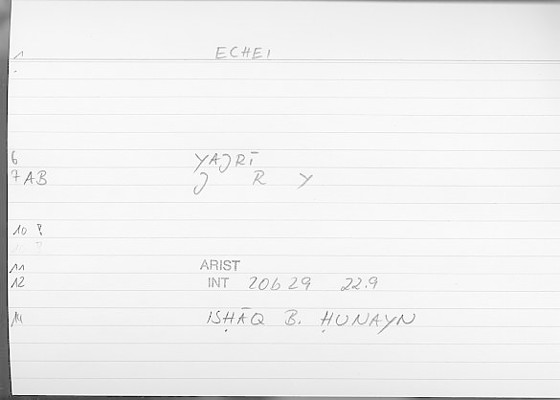 1 ECHEI
6 YAJRĪ
7 AB J R Y
10 ?
11 ARIST
12 INT 20b29 22.9
14 ISḤĀQ B. ḤUNAYN